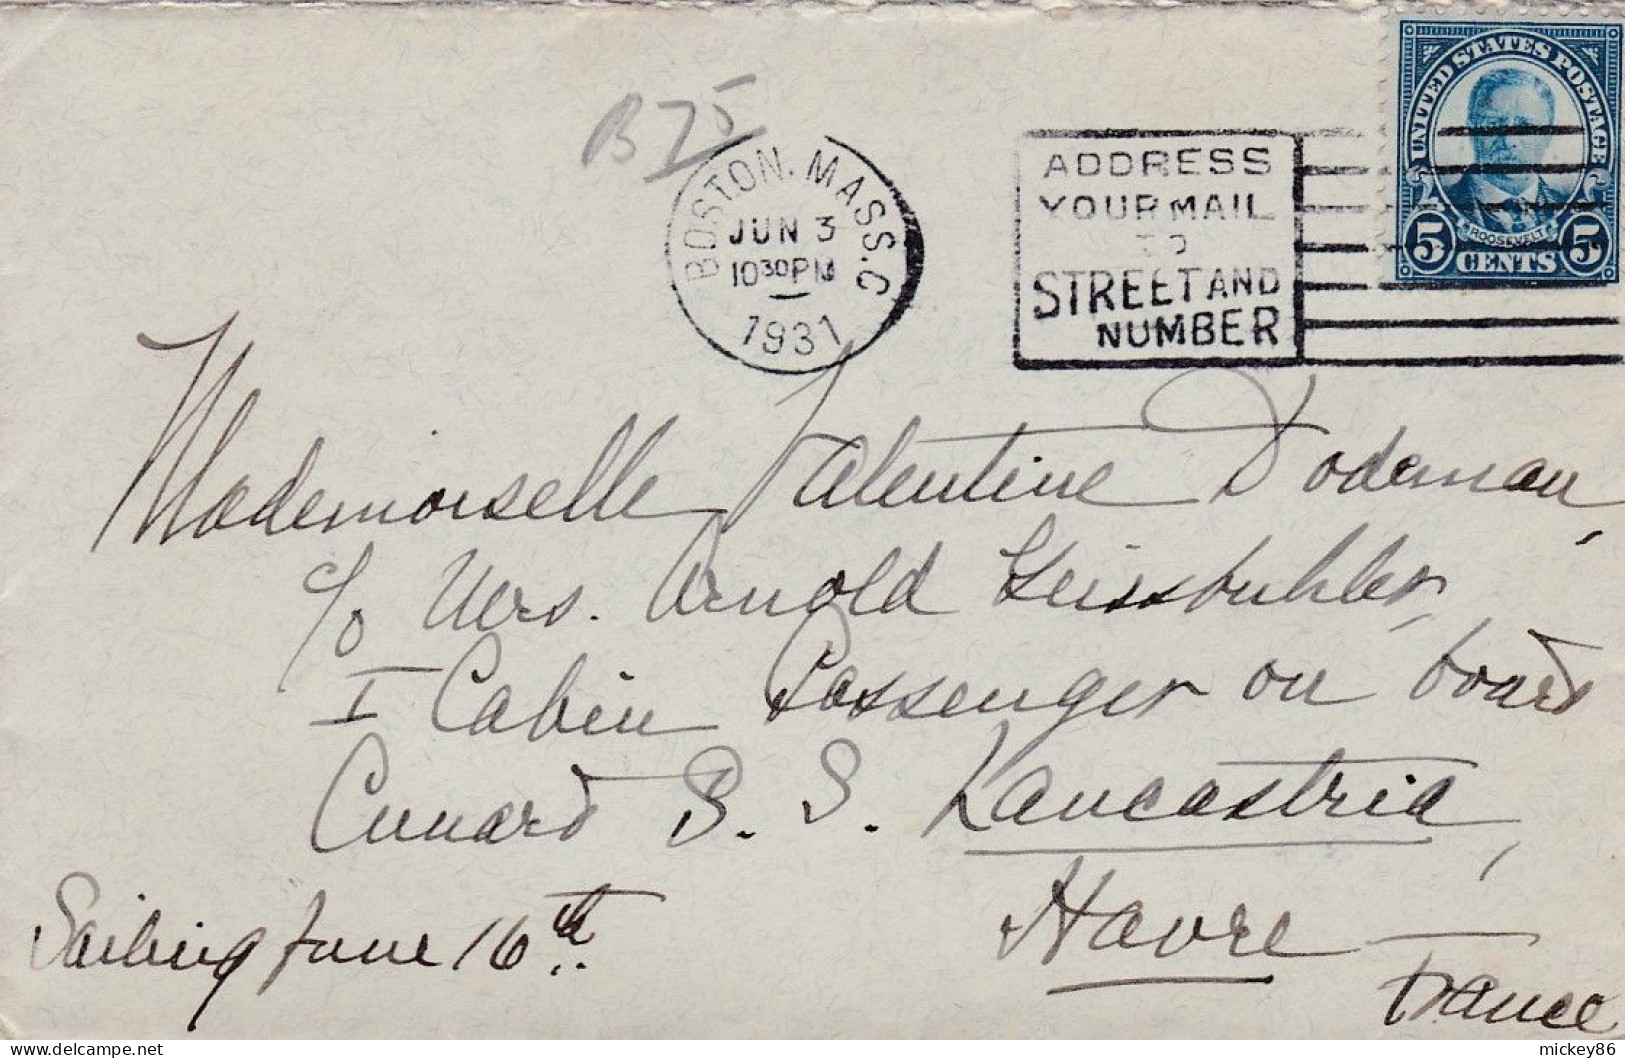 B75
UNITED STATES POSTAGE
ROOSEVELT
5 CENTS 5
BOSTON, MASS. C
JUN 3
10 30 PM
1931
ADDRESS
YOUR MAIL
TO
STREET AND
NUMBER
Mademoiselle Valentine Dodeman,
c/o Mrs. Arnold Geissbuhler,
I Cabin Passenger on board
Cunard S. S. Lancastria,
Havre —
France
Sailing June 16th..
mickey86